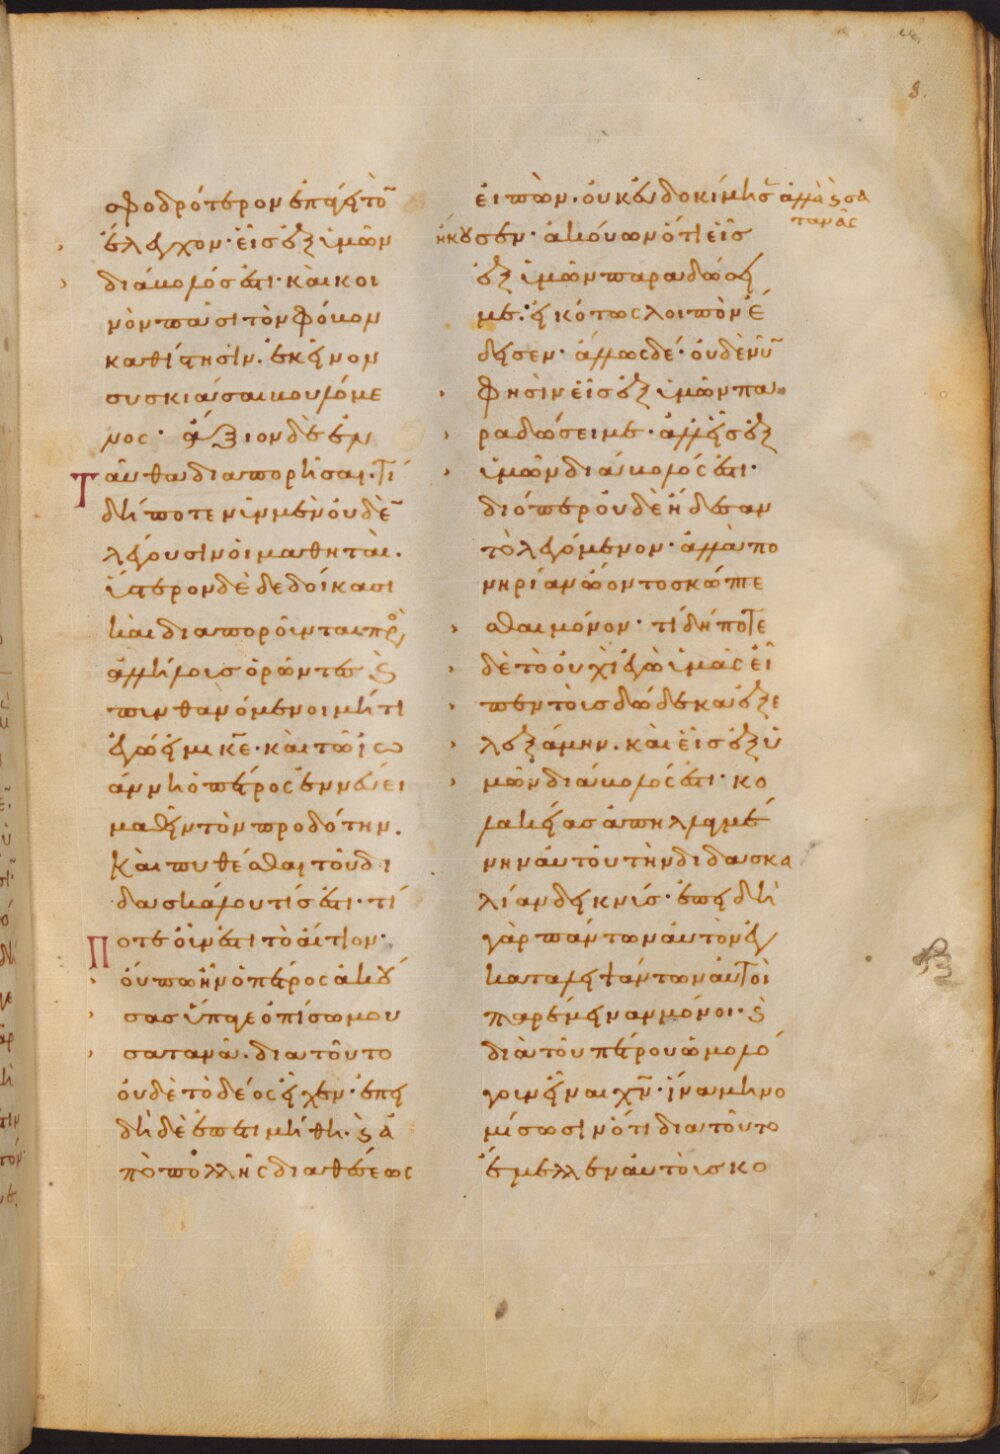 σφοδρότερον ἐπάγει τὸ(ν)
ἔλεγχον· εἷς ἐξ ὑμῶν
διάβολός ἐστι· καὶ κοι
νὸν πᾶσι τὸν φόβον
καθίστησιν. ἐκεῖνον
συσκιάσαι βουλόμε
νος· ἄξιον δὲ ἐν
ταῦθα διαπορῆσαι. Τί
δήποτε νῦν μὲν οὐδὲ(ν)
λέγουσιν οἱ μαθηταί.
ὕστερον δὲ δεδοίκασι
καὶ διαποροῦνται πρὸ(ς)
ἀλλήλους ὁρῶντες
πυνθανόμενοι μή τι
ἐγώ εἰμι κε̄· καὶ τῶ ἰω
άννη ὁ πέτρος ἐννεύει
μαθεῖν τὸν προδότην.
Καὶ πυθέσθαι τοῦ δι
δασκάλου τίς ἐστι· τί
Ποτε οὖν ἐστι τὸ αἴτιον·
οὔπω ἦν ὁ πέτρος ἀκού
σας ὕπαγε ὀπίσω μου
σατανᾶ. διὰ τοῦτο
οὐδὲ τὸ δέος εἶχεν· ἐπει
δὴ δὲ ἐπετιμήθη. ϗ ἀ
πὸ πολλῆς διαθέσεως
εἰπὼν. οὐκ εὐδοκίμησ(εν) ἀλλὰ ϗ σα
τανᾶς
ἤκουσεν· ἀκούων ὅτι εἷς
ἐξ ὑμῶν παραδώσει
με. εἰκότως λοιπὸν ἔ
δεισεν· ἄλλως δέ· οὐδὲ νῦ(ν)
φησὶν εἷς ἐξ ὑμῶν πα
ραδώσει με· ἀλλ' εἷς ἐξ
ὑμῶν διάβολός ἐστι·
διόπερ οὐδὲ ᾔδεσαν
τὸ λεγόμενον· ἀλλὰ πο
νηρίαν ὤοντο σκώπτε
σθαι μόνον· τί δήποτε
δὲ τὸ οὐχὶ ἐγὼ ὑμᾶς εἶ
πεν τοὺς δώδεκα ἐξε
λεξάμην. καὶ εἷς ἐξ ὑ
μῶν διάβολός ἐστι· κο
λακείας ἀπηλλαγμέ
νην αὐτοῦ τὴν διδασκα
λίαν δεικνύς· ἐπειδὴ
γὰρ πάντων αὐτὸν ἐγ
καταλειψάντων αὐτοὶ
παρέμειναν μόνοι· ϗ
διὰ τοῦ πέτρου ὡμολό
γουν εἶναι χν̄· ἵνα μὴ νο
μίσωσιν ὅτι διὰ τοῦτο
ἔμελλεν αὐτοῖς κο